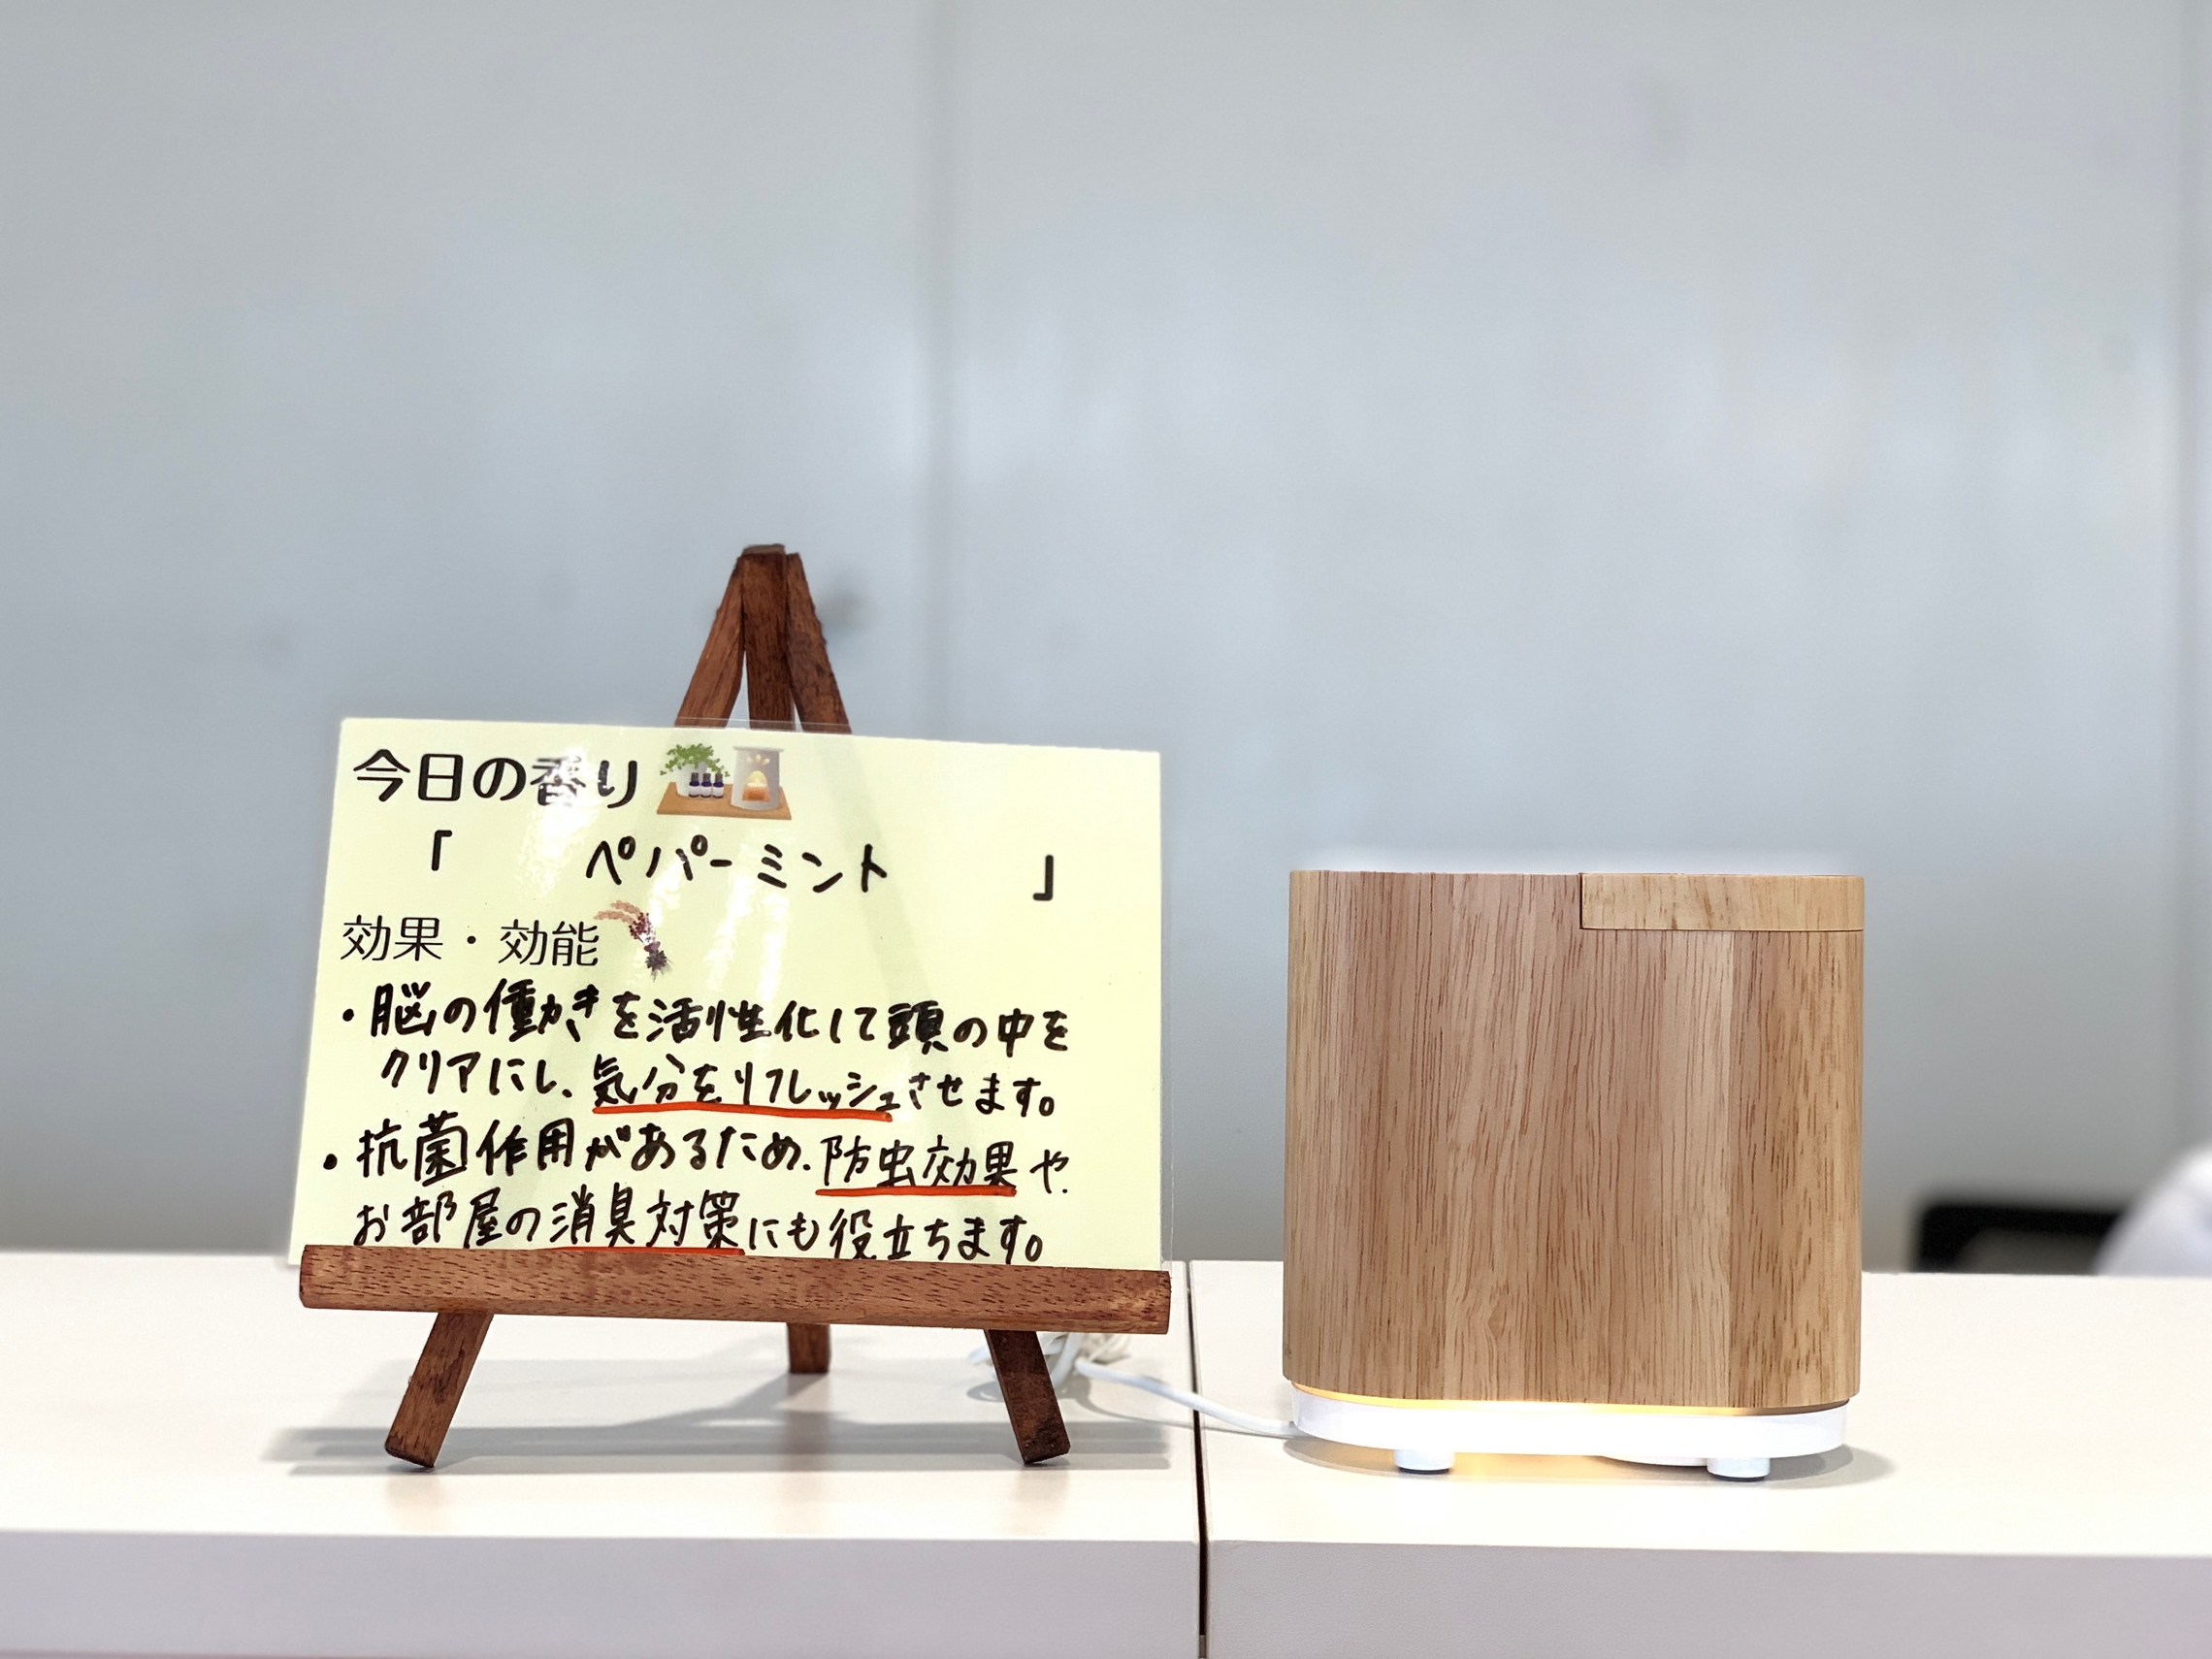 今日の香り
「 ペパーミント 」
効果・効能
・脳の働きを活性化して頭の中を
クリアにし、気分をリフレッシュさせます。
・抗菌作用があるため、防虫効果や、
お部屋の消臭対策にも役立ちます。